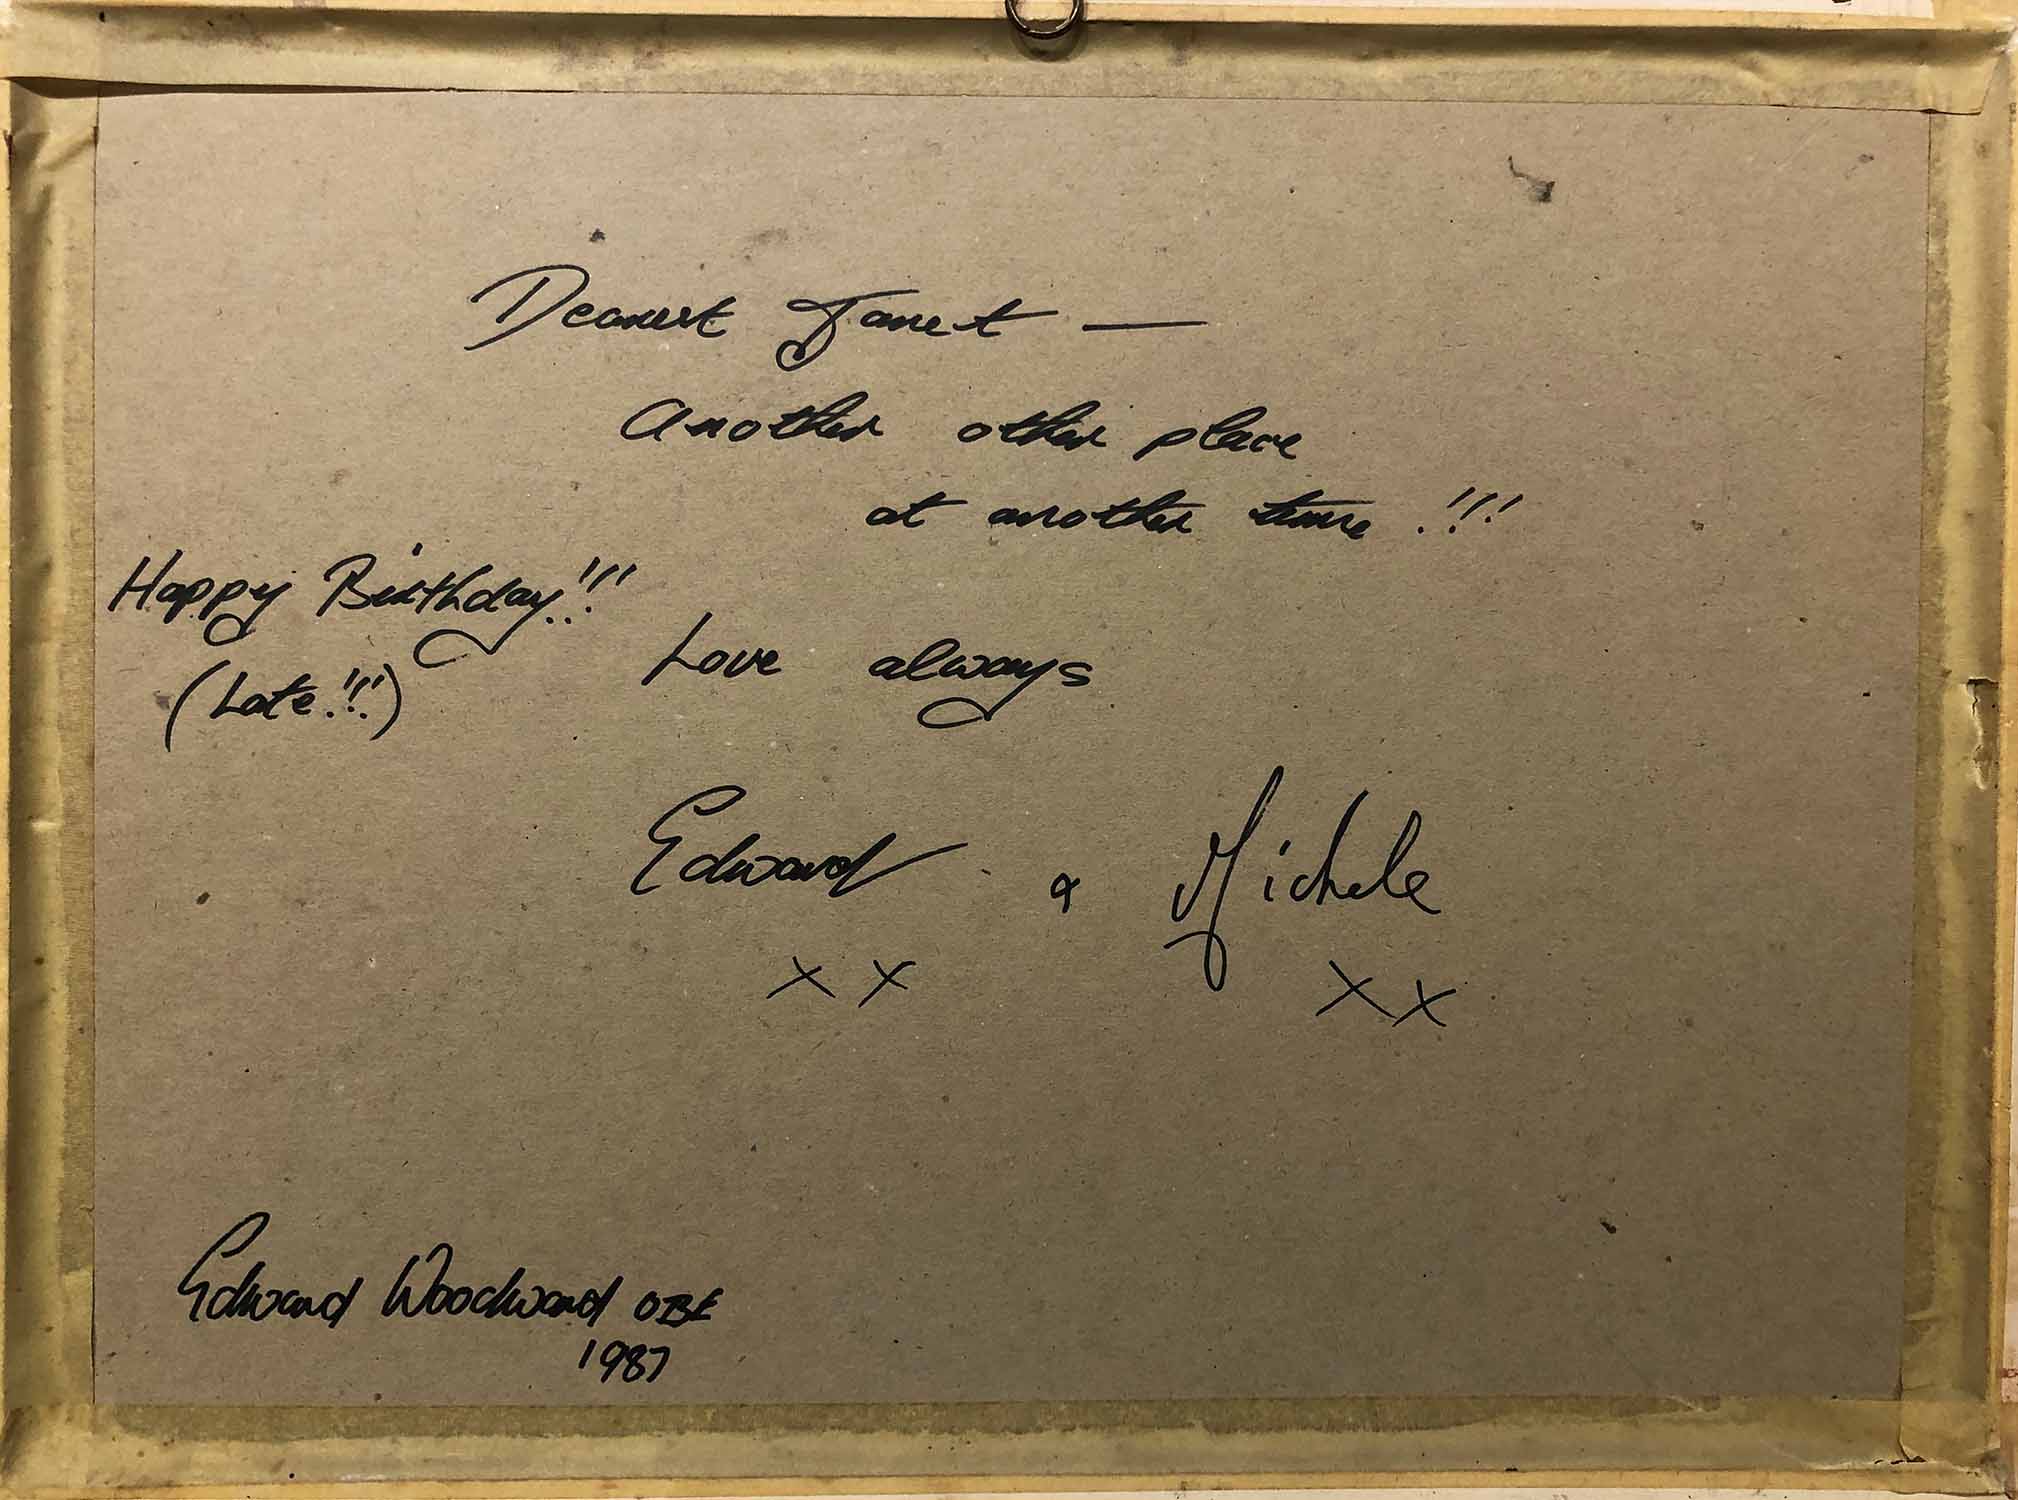 Dearest Janet —
Another other place
at another time !!!
Happy Birthday!!!
(Late!!!)
Love always
Edward & Michele
x x x x
Edward Woodward OBE
1987